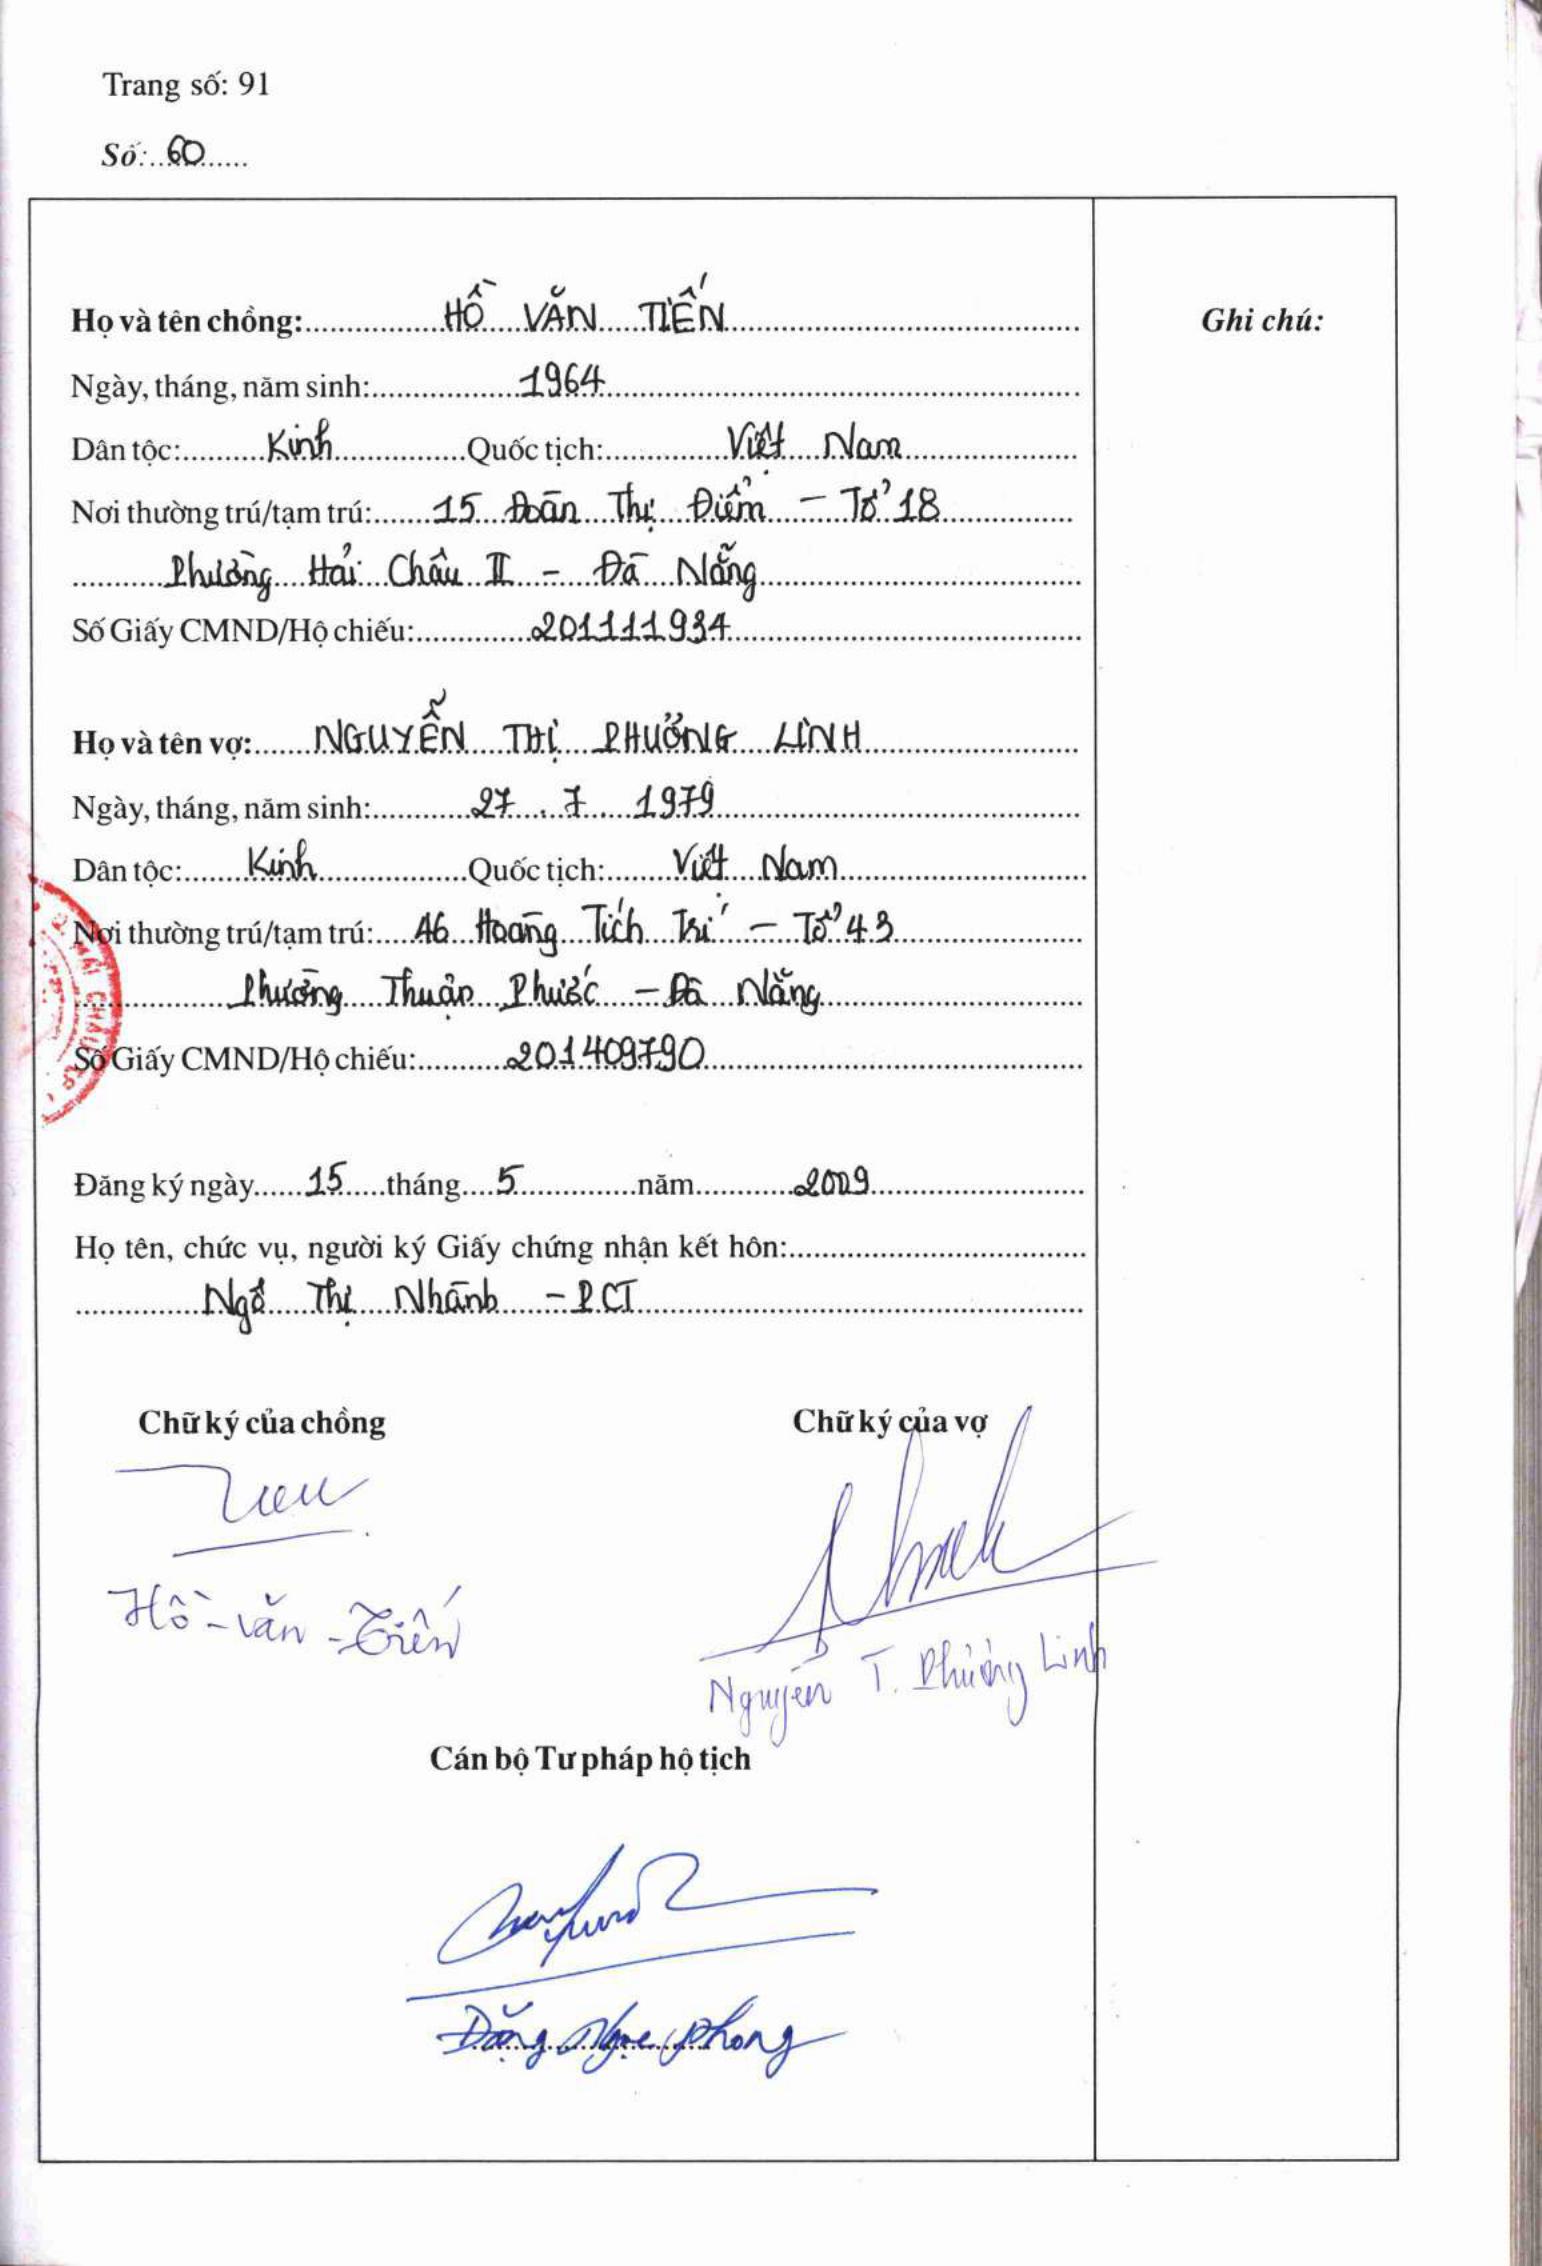 Trang số: 91
Số: 60
Họ và tên chồng: HỒ VĂN TIẾN
Ghi chú:
Ngày, tháng, năm sinh: 1964
Dân tộc: Kinh Quốc tịch: Việt Nam
Nơi thường trú/tạm trú: 15 Đoàn Thị Điểm - Tổ 18
Phường Hải Châu II - Đà Nẵng
Số Giấy CMND/Hộ chiếu: 201111934
Họ và tên vợ: NGUYỄN THỊ PHƯƠNG LINH
Ngày, tháng, năm sinh: 27. 7. 1979
Dân tộc: Kinh Quốc tịch: Việt Nam
Nơi thường trú/tạm trú: 46 Hoàng Tích Trí - Tổ 43
Phường Thuận Phước - Đà Nẵng
Số Giấy CMND/Hộ chiếu: 201409790
Đăng ký ngày 15 tháng 5 năm 2009
Họ tên, chức vụ, người ký Giấy chứng nhận kết hôn:
Ngô Thị Nhành - PCT
Chữ ký của chồng Chữ ký của vợ
Hồ - văn - Tiến
Nguyễn T. Phương Linh
Cán bộ Tư pháp hộ tịch
Đặng Ngọc Phong